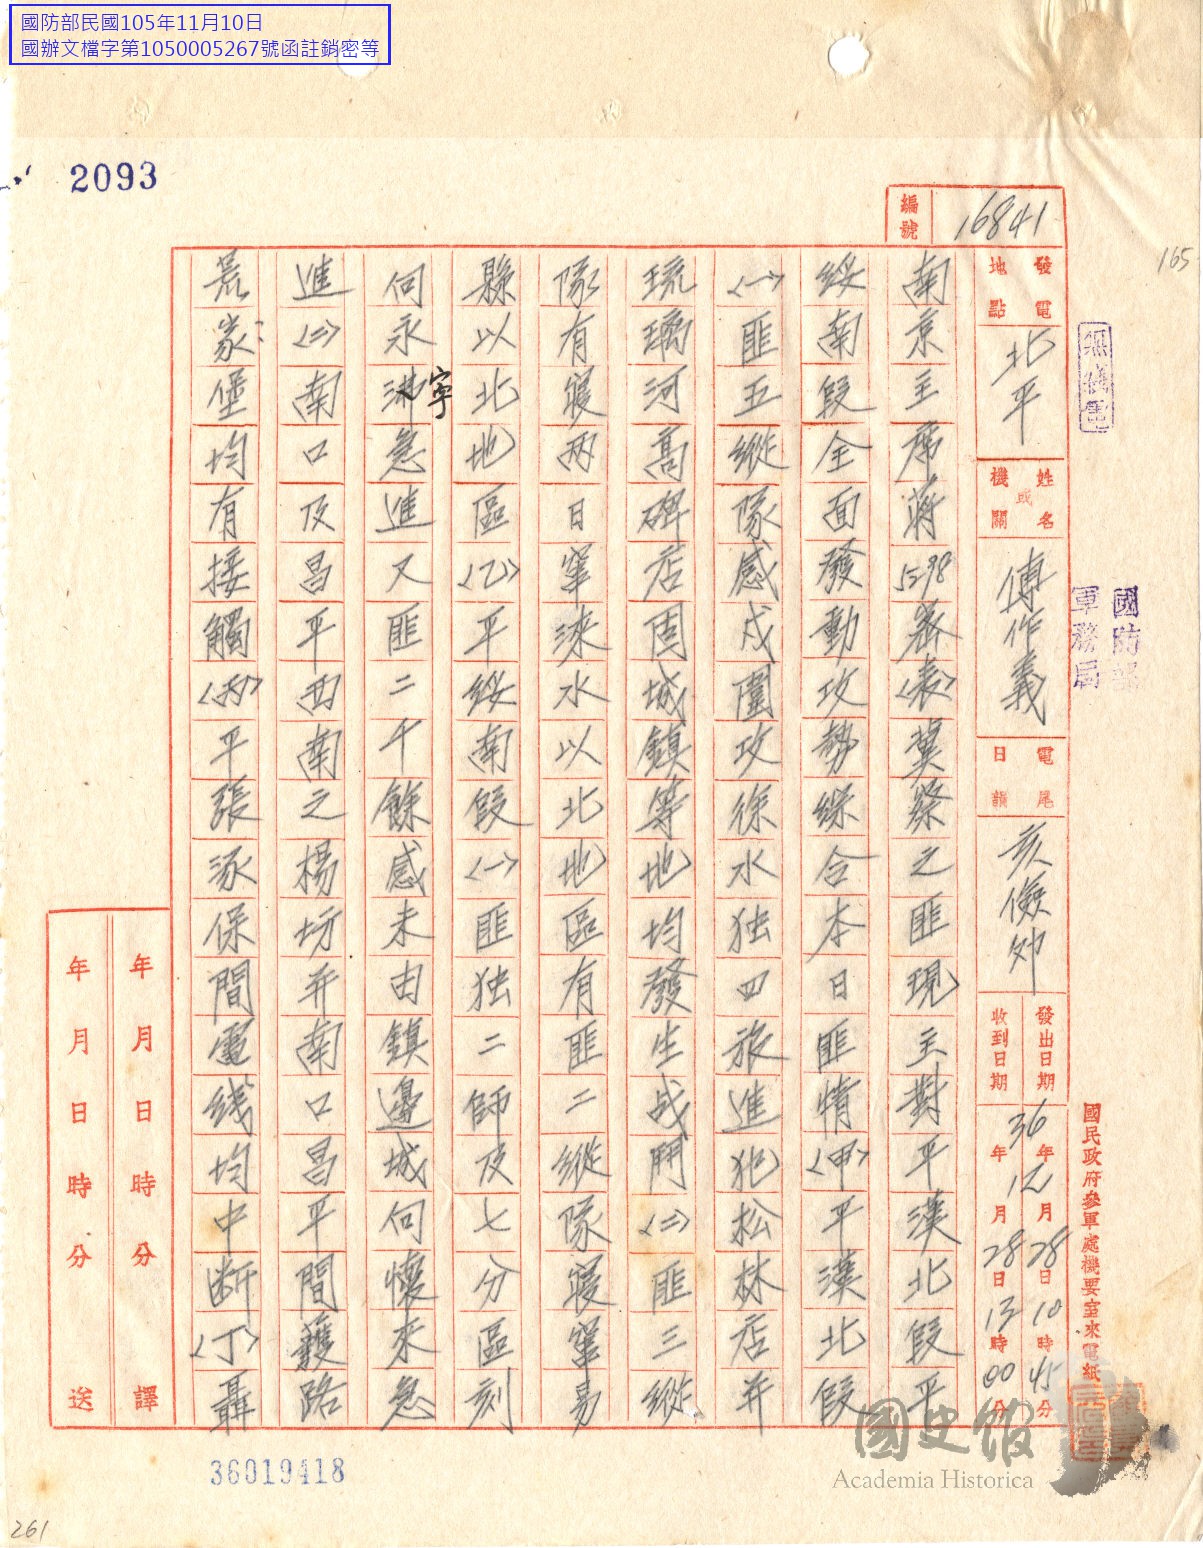 國防部民國105年11月10日
國辦文檔字第1050005267號函註銷密等
2093
165
編號
16841
無線電
國防部
軍務局
國民政府參軍處機要室來電紙
發電地點
北平
姓名或機關
傅作義
電尾日韻
亥儉
發出日期
36年12月28日10時45分
收到日期
年月28日13時00分
南京主席蔣5298密〈表〉冀察之匪現主對平漢北段平
綏南段全面發動攻勢綜合本日匪情〈甲〉平漢北段
〈一〉匪五縱隊感戌圍攻徐水独四旅進犯松林店并
琉璃河高碑店固城鎮等地均發生战鬥〈二〉匪三縱
隊有寢兩日竄淶水以北地區有匪二縱隊寢竄易
縣以北地區〈乙〉平綏南段〈一〉匪独二師及七分區刻
向永寧急進又匪二千餘感未由鎮邊城向懷來急
進〈二〉南口及昌平西南之楊坊并南口昌平間護路
荒家堡均有接觸〈丙〉平張涿保間電线均中断〈丁〉聶
年月日時分譯
年月日時分送
36019418
261
國史館
Academia Historica